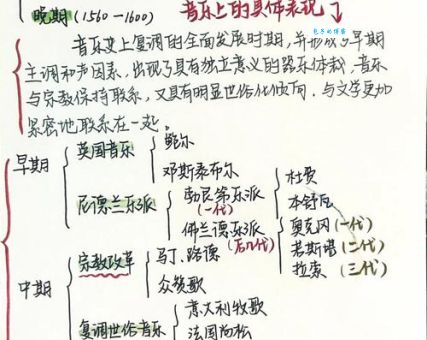 晚期(1560—1600) 音乐上的具体表现
包子的博客
音乐史上复调的全面发展时期,并形成了早期
主调和声因素,出现了具有独立意义的器乐体裁,音乐
与宗教保持联系,又具有明显世俗化倾向,与文学更加
紧密地联系在一起。
早期
英国音乐
鲍尔
邓斯泰布尔
尼德兰乐派
勃艮第乐派
(一代)
杜费
本舒瓦
佛兰德乐派
(后几代)
奥克冈(一代)
若斯堪(二代)
拉索(三代)
中期
宗教改革
马丁.路德
众赞歌
复调世俗音乐
意大利牧歌
法国尚松